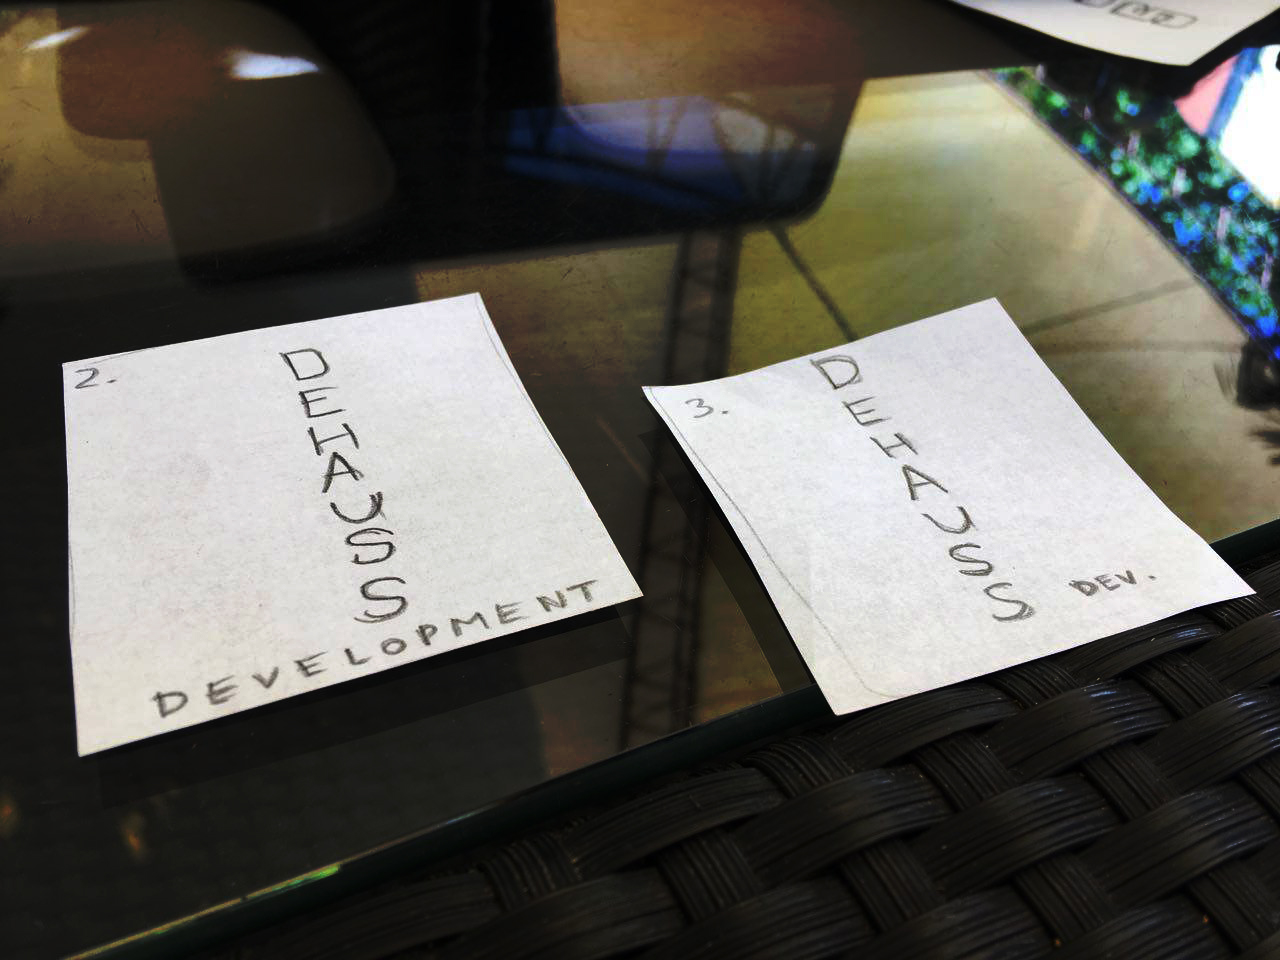 2.
DEHAUSS
DEVELOPMENT
3.
DEHAUSS
DEV.